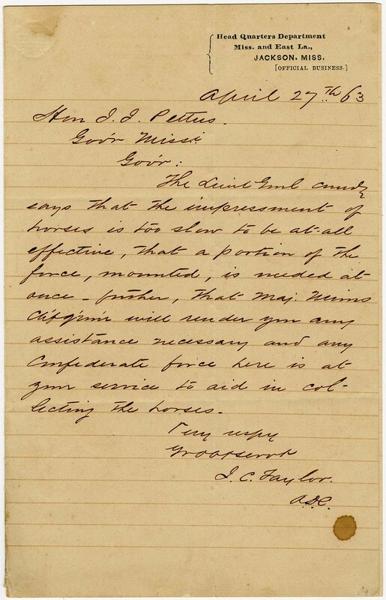 Head Quarters Department
Miss. and East La.,
JACKSON, MISS.
[OFFICIAL BUSINESS.]
April 27th 63
Hon J. J. Pettus.
Gov'r Missi
Gov'r:
The Lieut Genl comdg
says that the impressment of
horses is too slow to be at all
effective, that a portion of the
force, mounted, is needed at
once - further, that Maj. Mims
Chf Qr'm will render you any
assistance necessary and any
Confederate force here is at
your service to aid in col-
lecting the horses.
Very respy
Yr obt servt
J. C. Taylor.
A.D.C.